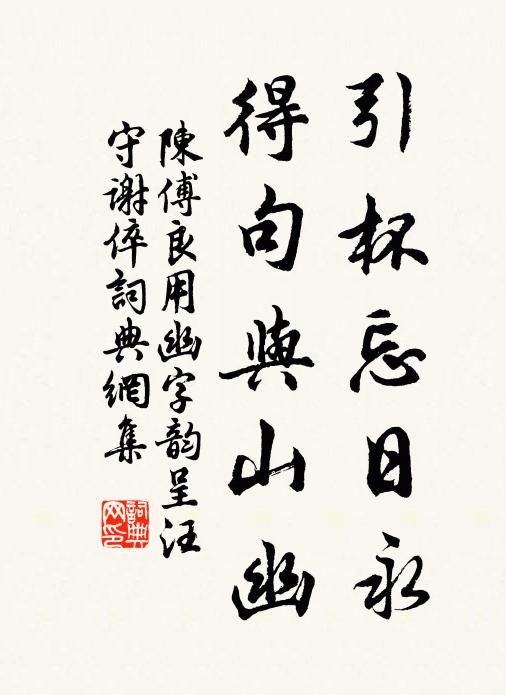 引杯忘日永
得句與山幽
陳傅良用幽字韵呈汪
守谢倅詞典網集
詞典
网印